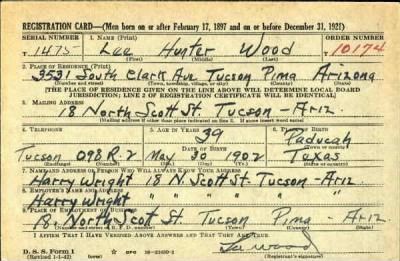 REGISTRATION CARD—(Men born on or after February 17, 1897 and on or before December 31, 1921)
SERIAL NUMBER 1. NAME (Print) ORDER NUMBER
T 1475 Lee Hunter Wood 10174
(First) (Middle) (Last)
2. PLACE OF RESIDENCE (Print)
3531 South Clark Ave Tucson Pima Arizona
(Number and street) (Town, township, village, or city) (County) (State)
[THE PLACE OF RESIDENCE GIVEN ON THE LINE ABOVE WILL DETERMINE LOCAL BOARD
JURISDICTION; LINE 2 OF REGISTRATION CERTIFICATE WILL BE IDENTICAL]
3. MAILING ADDRESS
18 North Scott St. Tucson - Ariz.
[Mailing address if other than place indicated on line 2. If same insert word same]
4. TELEPHONE 5. AGE IN YEARS 6. PLACE OF BIRTH
39 Paducah
DATE OF BIRTH (Town or county)
Tucson 098R2 May 30 1902 Texas
(Exchange) (Number) (Mo.) (Day) (Yr.) (State or country)
7. NAME AND ADDRESS OF PERSON WHO WILL ALWAYS KNOW YOUR ADDRESS
Harry Wright 18 N. Scott St. Tucson - Ariz
8. EMPLOYER'S NAME AND ADDRESS
Harry Wright " " " " "
9. PLACE OF EMPLOYMENT OR BUSINESS
18 North Scot St. Tucson Pima - Ariz.
(Number and street or R. F. D. number) (Town) (County) (State)
I AFFIRM THAT I HAVE VERIFIED ABOVE ANSWERS AND THAT THEY ARE TRUE.
D. S. S. Form 1
(Revised 1-1-42) (over) GPO Lee Wood
(Registrant's signature)